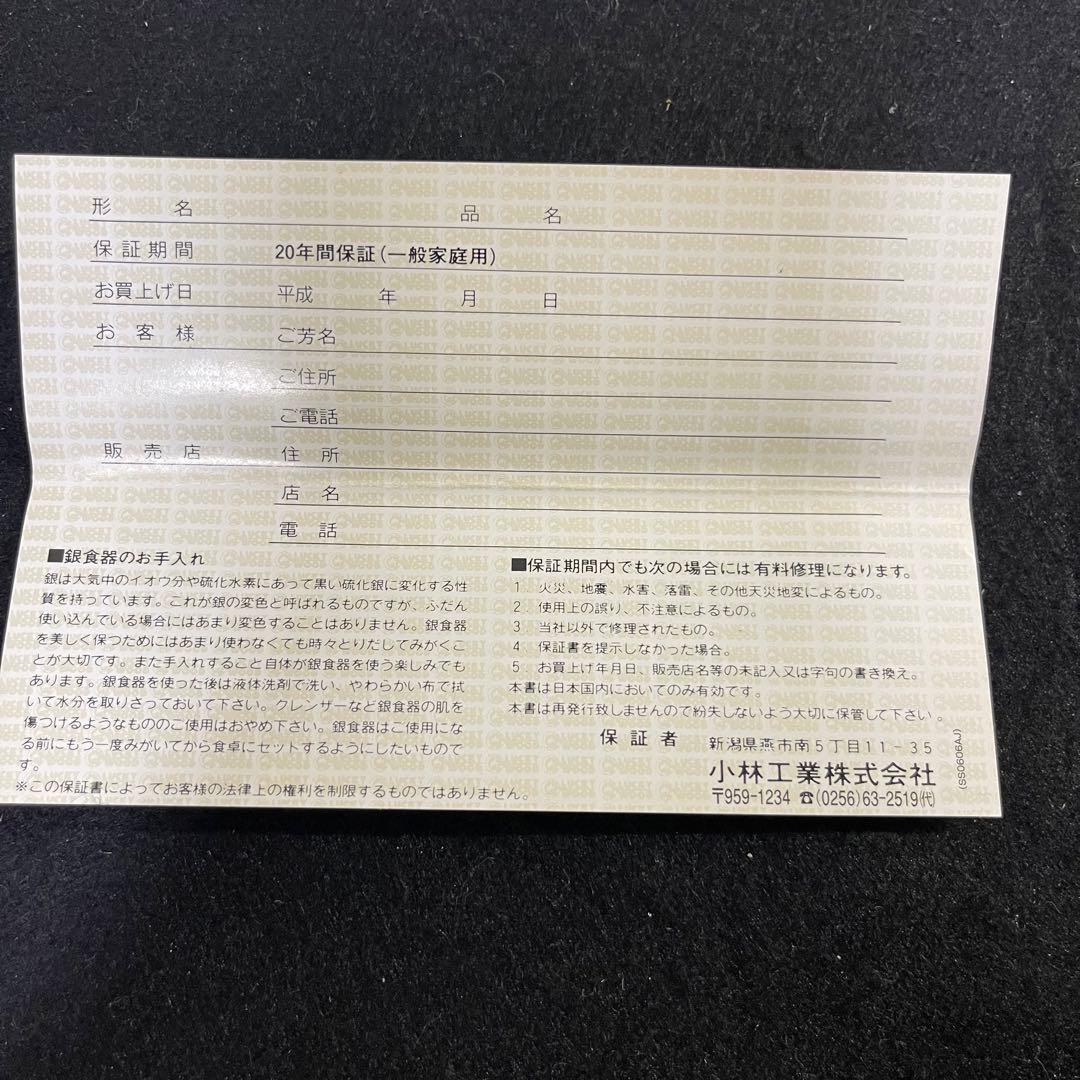 形名 品名
保証期間 20年間保証(一般家庭用)
お買上げ日 平成 年 月 日
お客様 ご芳名
ご住所
ご電話
販売店 住所
店名
電話
■銀食器のお手入れ
銀は大気中のイオウ分や硫化水素にあって黒い硫化銀に変化する性
質を持っています。これが銀の変色と呼ばれるものですが、ふだん
使い込んでいる場合にはあまり変色することはありません。銀食器
を美しく保つためにはあまり使わなくても時々とりだしてみがくこ
とが大切です。また手入れすること自体が銀食器を使う楽しみでも
あります。銀食器を使った後は液体洗剤で洗い、やわらかい布で拭
いて水分を取りさっておいて下さい。クレンザーなど銀食器の肌を
傷つけるようなもののご使用はおやめ下さい。銀食器はご使用にな
る前にもう一度みがいてから食卓にセットするようにしたいもので
す。
※この保証書によってお客様の法律上の権利を制限するものではありません。
■保証期間内でも次の場合には有料修理になります。
1. 火災、地震、水害、落雷、その他天災地変によるもの。
2. 使用上の誤り、不注意によるもの。
3. 当社以外で修理されたもの。
4. 保証書を提示しなかった場合。
5. お買上げ年月日、販売店名等の未記入又は字句の書き換え。
本書は日本国内においてのみ有効です。
本書は再発行致しませんので紛失しないよう大切に保管して下さい。
保証者 新潟県燕市南5丁目11-35
小林工業株式会社
〒959-1234 ☎(0256)63-2519(代)
(SS0606AJ)